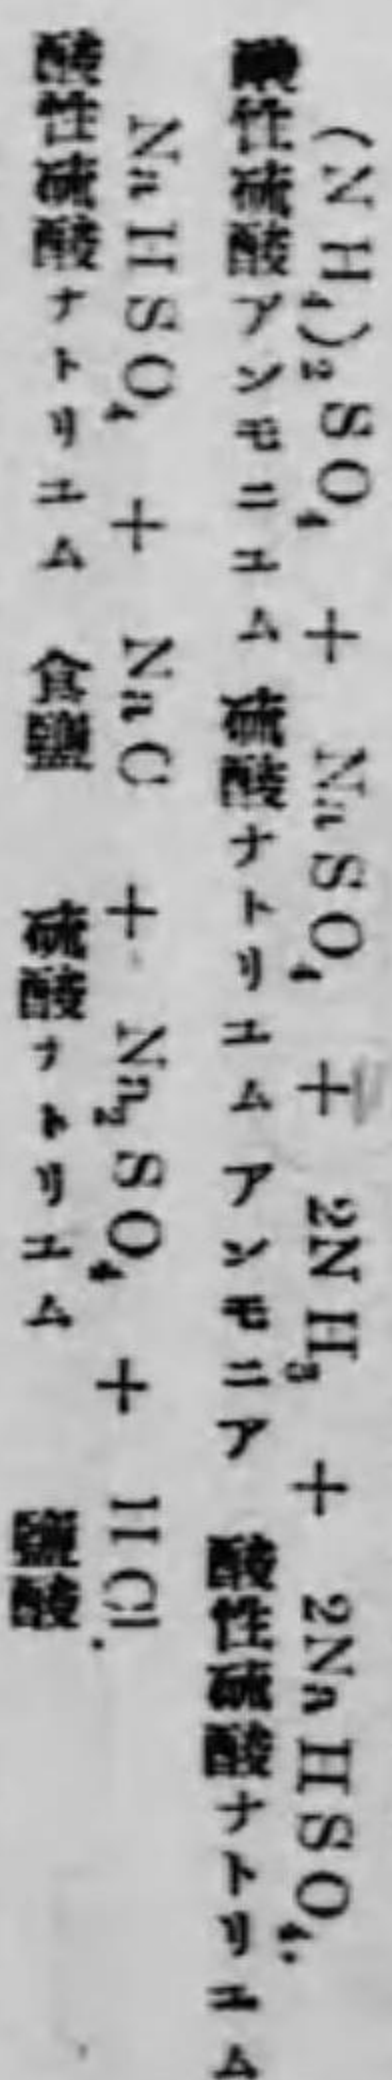 (NH₄)₂SO₄ + NaSO₄ + 2NH₃ + 2NaHSO₄.
酸性硫酸アンモニエム 硫酸ナトリエム アンモニア 酸性硫酸ナトリエム
NaHSO₄ + NaC + Na₂SO₄ + HCl.
酸性硫酸ナトリエム 食鹽 硫酸ナトリエム 鹽酸